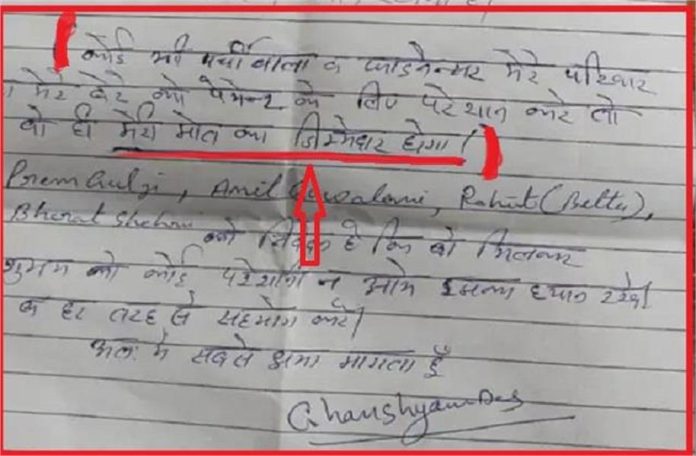 कोई भी पर्ची वाला व फाइनेन्सर मेरे परिवार
मेरे बेटे को पेमेन्ट के लिए परेशान करे तो
वो ही मेरी मौत का जिम्मेदार होगा।
Premchulji, Anil, Rohit (Betta),
Bharat
को निवेदन है कि वो मिलकर
शुभम को कोई परेशानी न आये इसका ध्यान रखे।
व हर तरह से सहयोग करे।
अतः मै सबसे क्षमा मांगता हूँ
GhanshyamDas